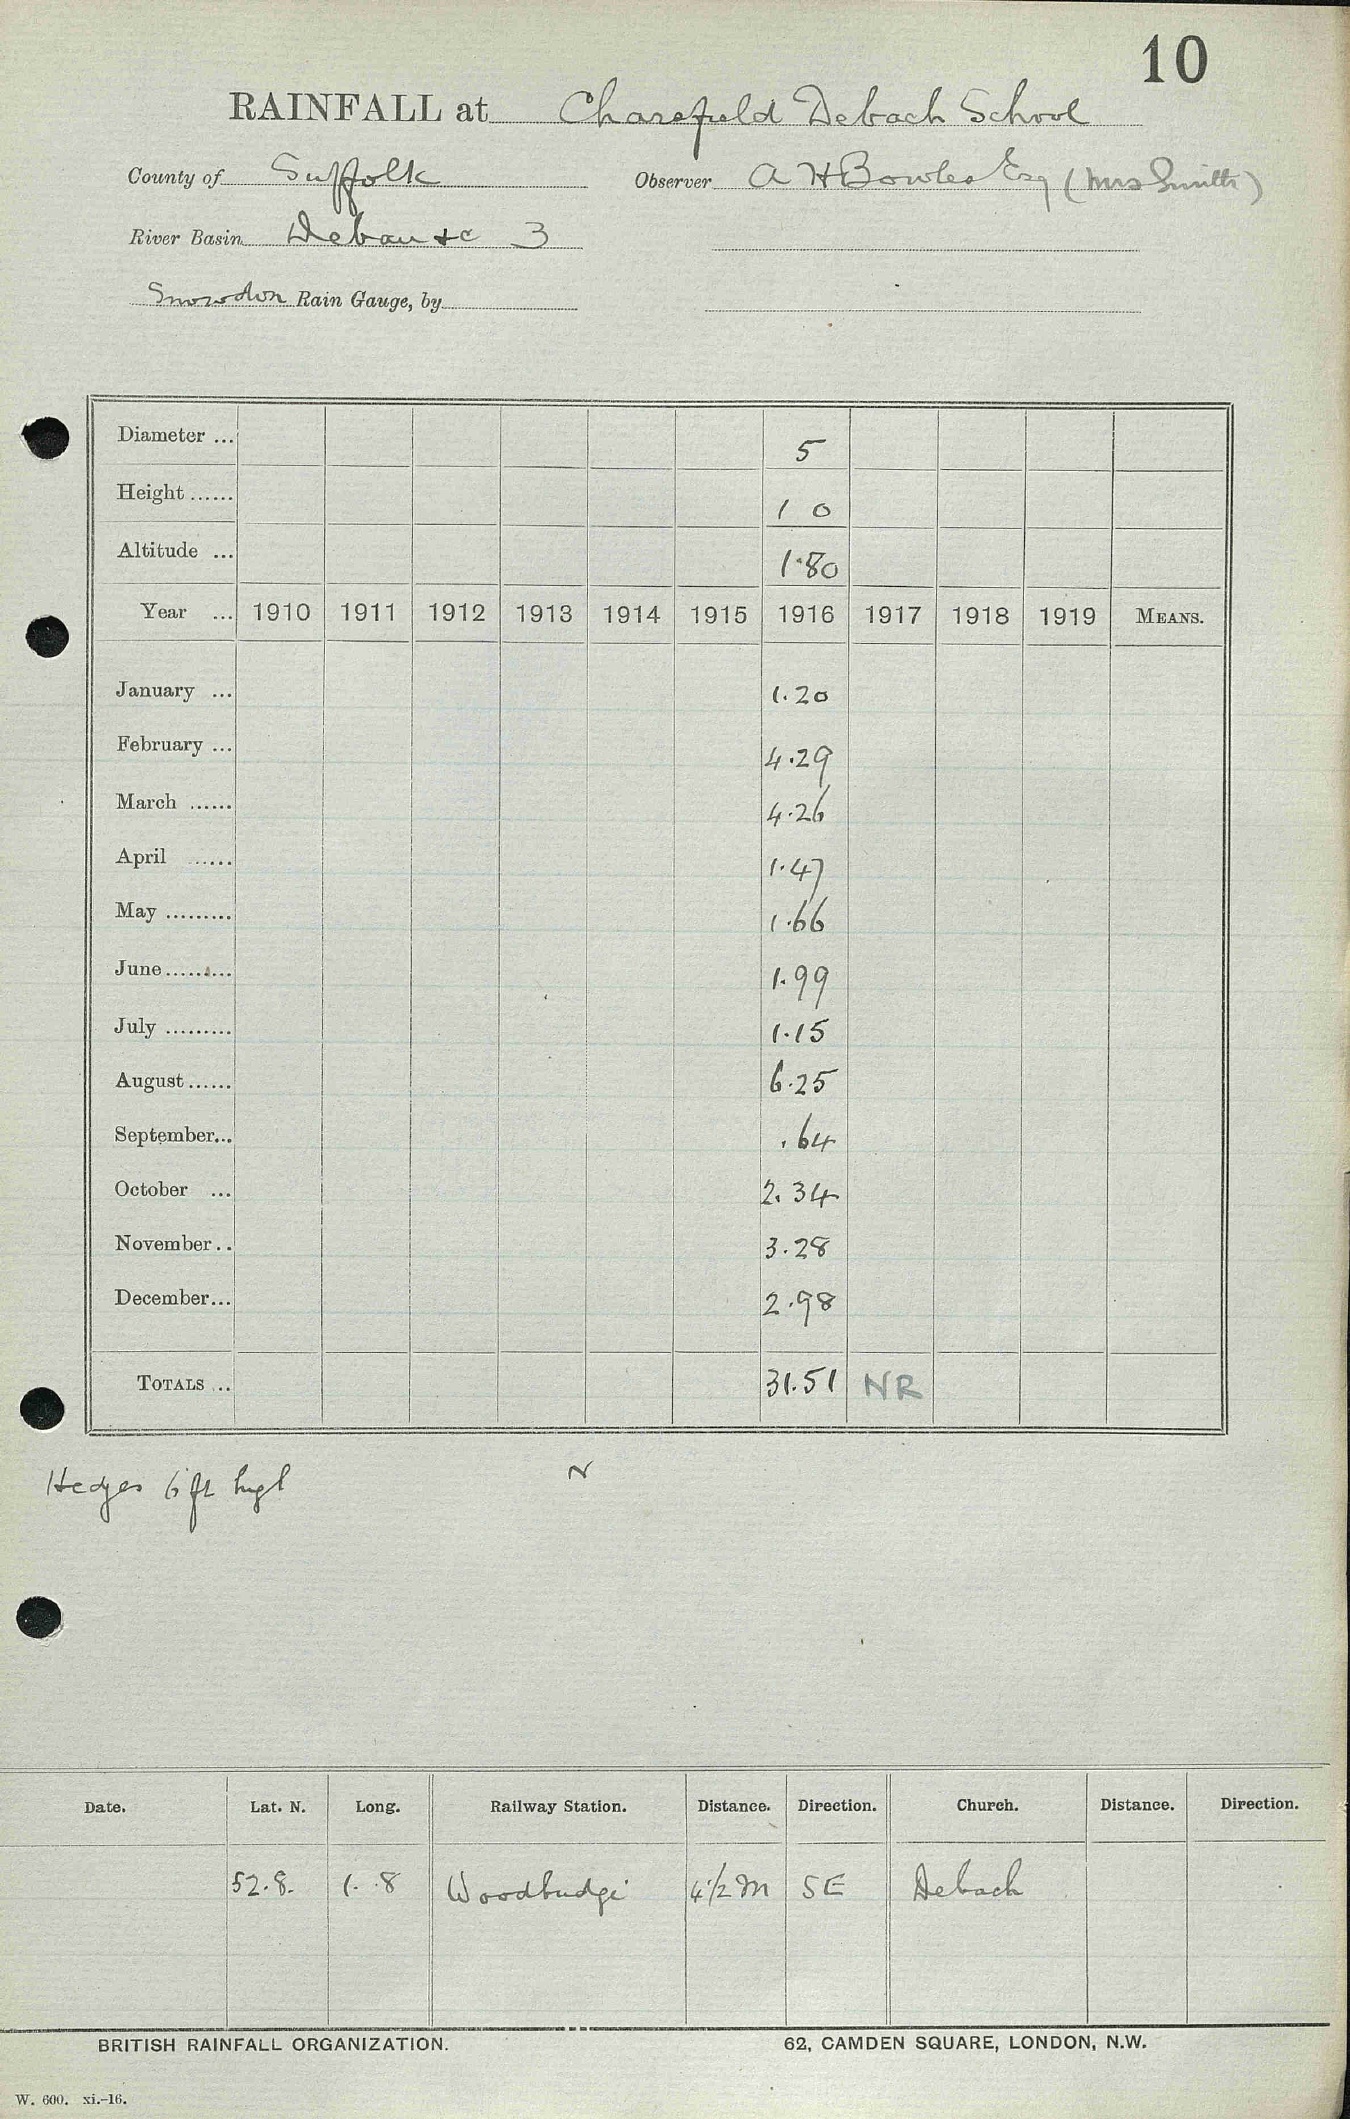 10
RAINFALL at Charsfield Debach School
County of Suffolk Observer A H Bowles Esq (Mrs Smith)
River Basin Deban &c 3
Snowdon Rain Gauge, by
Diameter ... 5
Height ...... 1 0
Altitude ... 180
Year ... 1910 1911 1912 1913 1914 1915 1916 1917 1918 1919 MEANS.
January ... 1.20
February ... 4.29
March ...... 4.26
April ...... 1.47
May ......... 1.66
June ......... 1.99
July ......... 1.15
August ...... 6.25
September... .64
October ... 2.34
November .. 3.28
December... 2.98
TOTALS ... 31.51 NR
Hedges 6 ft high N
Date. Lat. N. Long. Railway Station. Distance. Direction. Church. Distance. Direction.
52.8. 1. .8 Woodbridge 4½ m SE Debach
BRITISH RAINFALL ORGANIZATION. 62, CAMDEN SQUARE, LONDON, N.W.
W. 600. xi.-16.